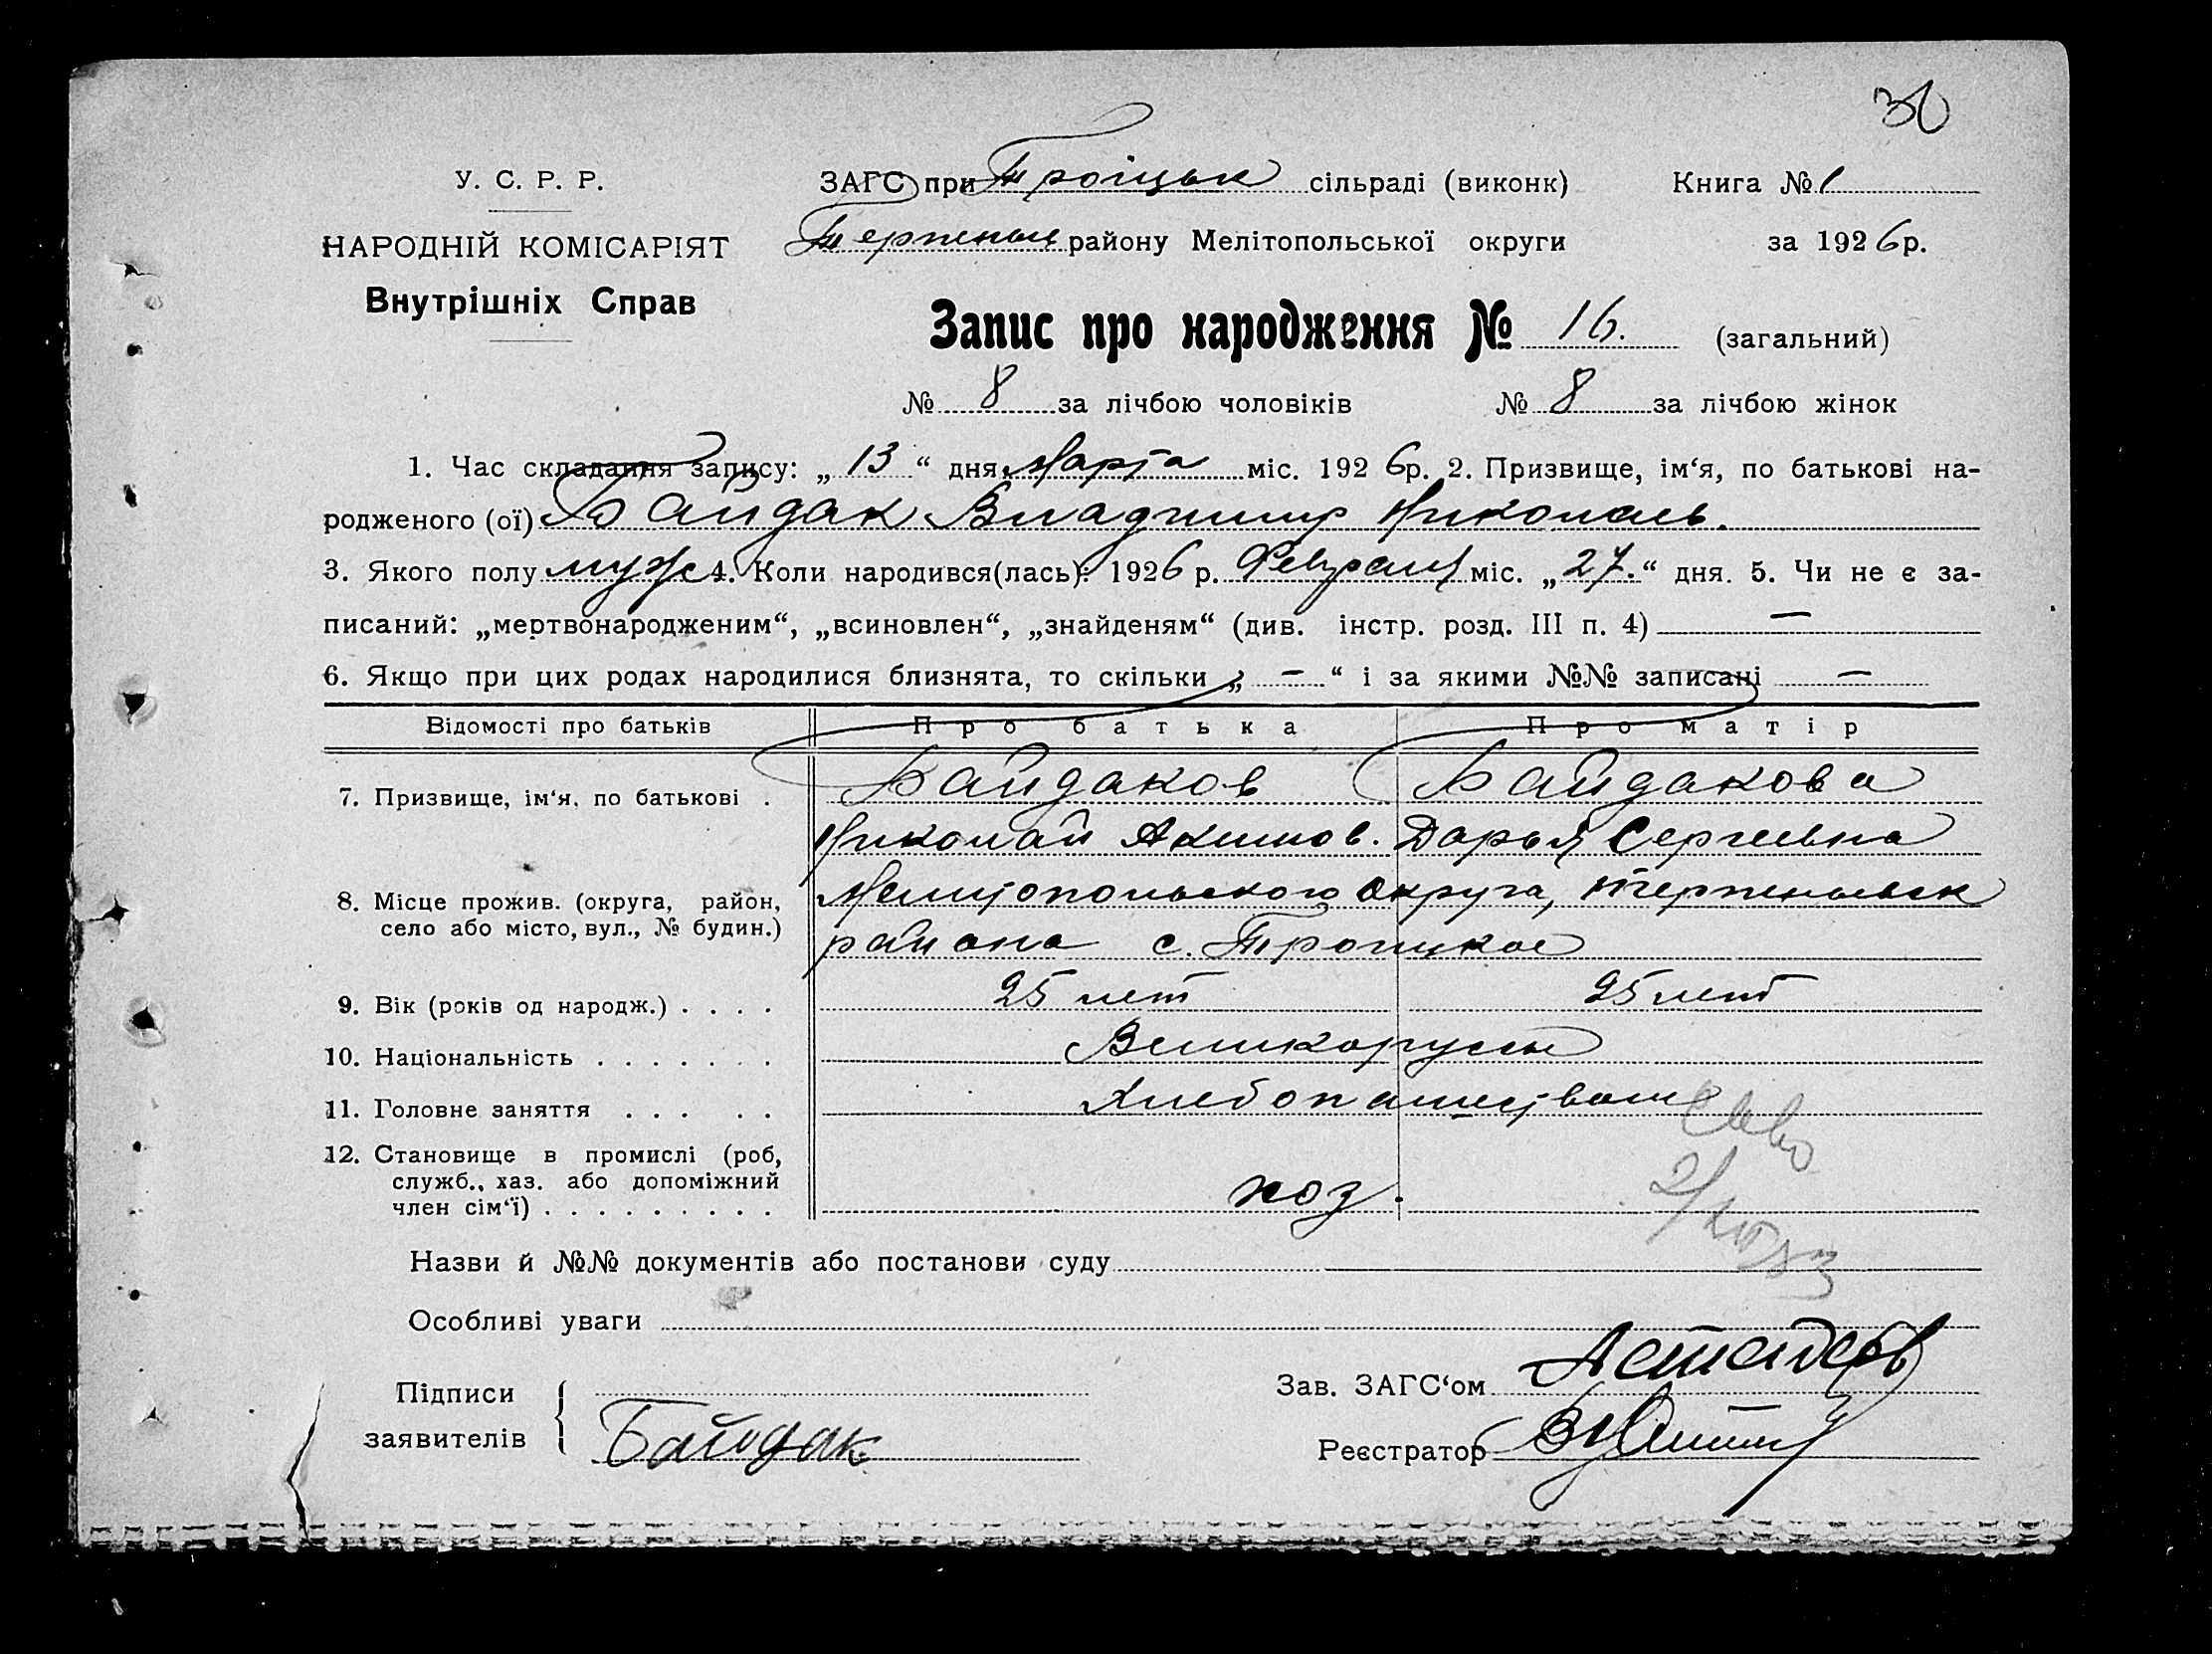 30
У. С. Р. Р. ЗАГС при Троїцьк сільраді (виконк) Книга № 1
НАРОДНІЙ КОМІСАРІЯТ Терпеньев району Мелітопольської округи за 1926 р.
Внутрішніх Справ
Запис про народження № 16. (загальний)
№ 8 за лічбою чоловіків № 8 за лічбою жінок
1. Час складання запису: „13“ дня Марта міс. 1926 р. 2. Призвище, ім‘я, по батькові на-
родженого (ої) Байдак Владимир Николаев.
3. Якого полу муж 4. Коли народився(лась): 1926 р. Февраля міс. „27.“ дня. 5. Чи не є за-
писаний: „мертвонародженим“, „всиновлен“, „знайденям“ (див. інстр. розд. III п. 4) —
6. Якщо при цих родах народилися близнята, то скільки „ — “ і за якими №№ записані —
Відомості про батьків Про батька Про матір
7. Призвище, ім‘я, по батькові . Байдаков Байдакова
Николай Акимов. Дарья Сергеевна
8. Місце прожив. (округа, район, село або місто, вул., № будин.) Мелитопольского Округа, Терпеньевск
района с. Троицкое
9. Вік (років од народж.) . . . . 25 лет 25 лет
10. Національність . . . . . . . Великоруссы
11. Головне заняття . . . . . Хлебопашеством
12. Становище в промислі (роб,
служб., хаз. або допоміжний
член сім‘ї) . . . . . . . . . хоз.
Назви й №№ документів або постанови суду
Особливі уваги
Підписи
заявителів Байдак
Зав. ЗАГС‘ом
Реєстратор